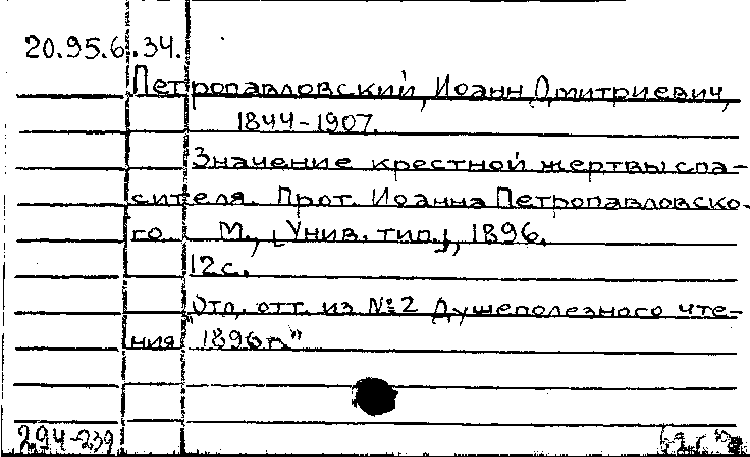 20.95.6.34.
Петропавловский, Иоанн Дмитриевич,
1844-1907.
Значение крестной жертвы спа-
сителя. Прот. Иоанна Петропавловско-
го. М., [Унив. тип.], 1896.
12с.
Отд. отт. из №2 "Душеполезного чте-
ния" 1896г."
294-239